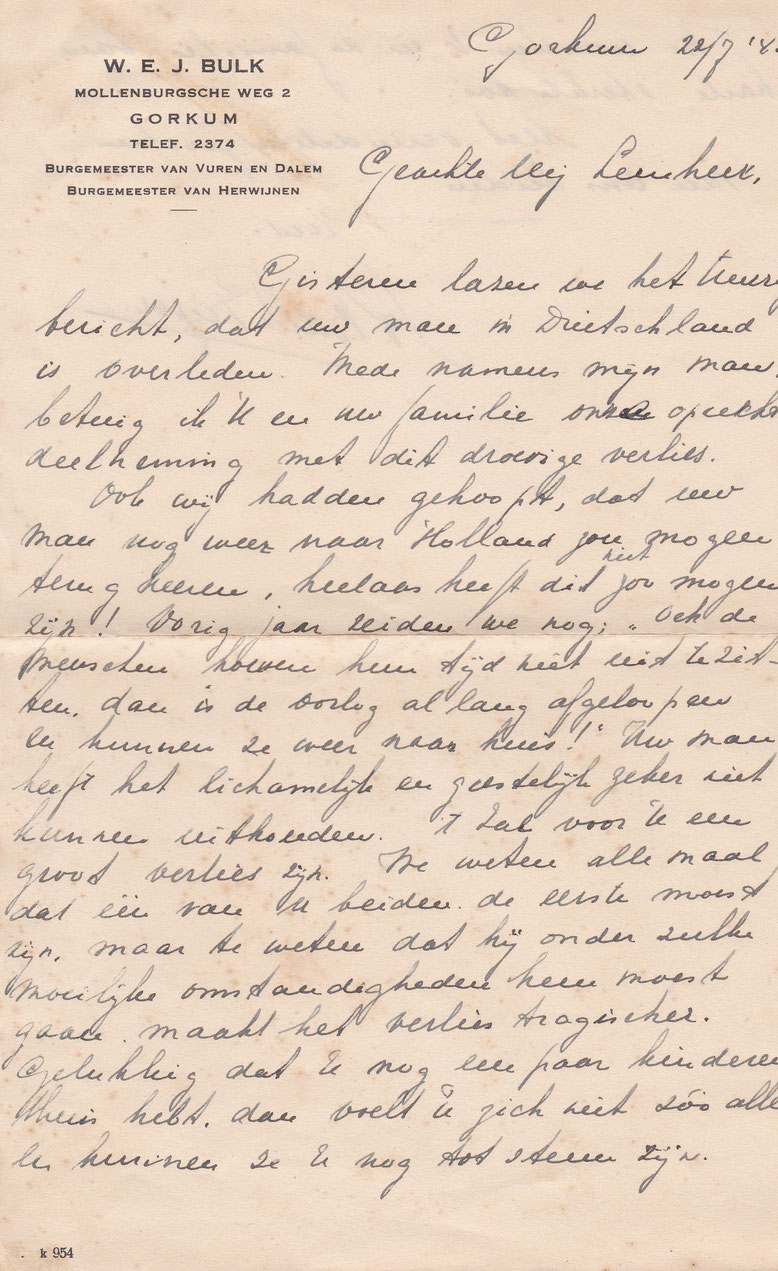 W. E. J. BULK
MOLLENBURGSCHE WEG 2
GORKUM
TELEF. 2374
BURGEMEESTER VAN VUREN EN DALEM
BURGEMEESTER VAN HERWIJNEN
Gorkum 22/7 '4
Geachte Mej Leenheer,
Gisteren lazen we het treurig
bericht, dat uw man in Duitschland
is overleden. Mede namens mijn man,
betuig ik U en uw familie onze oprechte
deelneming met dit droevige verlies.
Ook wij hadden gehoopt, dat uw
man nog weer naar Holland zou mogen
terug keeren, helaas heeft dit niet zou mogen
zijn! Vorig jaar zeiden we nog; „Och de
menschen hoeven hun tijd niet uit te zit-
ten, dan is de oorlog al lang afgeloopen
en kunnen ze weer naar huis!" Uw man
heeft het lichamelijk en geestelijk zeker niet
kunnen uithouden. 't Zal voor U een
groot verlies zijn. We weten allemaal
dat één van U beiden de eerste moest
zijn, maar te weten dat hij onder zulke
moeilijke omstandigheden heen moest
gaan, maakt het verlies tragischer.
Gelukkig dat U nog een paar kinderen
thuis hebt, dan voelt U zich niet zóó alle
en kunnen ze U nog tot steun zijn.
k 954